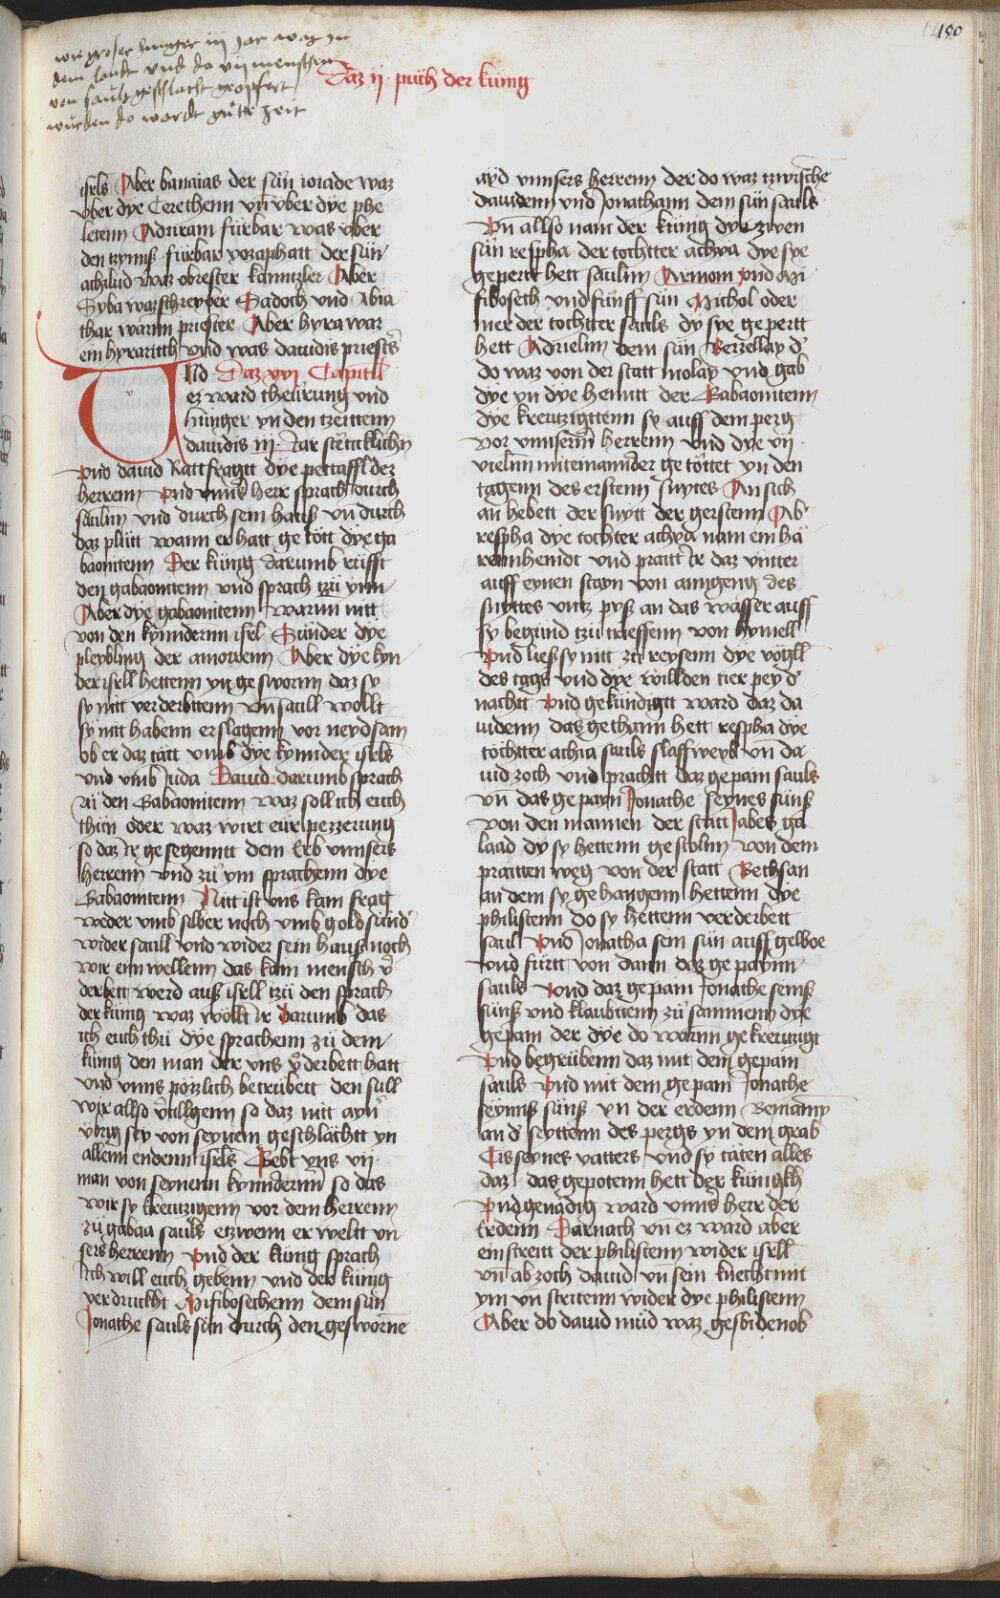 180
wie groser hunger iij jar waz yn
dem landt vnd do vij menschen
von sauls geschlacht geopfert
wurden do wardt gute zeit
Daz ij puch der kunig
isrls Aber banaias der sun ioiade waz
vber dye Cerethenn vn vber dye phe
letenn Aduram furbar was vber
den tzynnß furbar yozaphatt der sun
achilud waz obrester kanntzler Aber
Syba waz schreyber Sadoch vnd Abia
thar warnn priester Aber hyra waz
ein hyraritth vnd was dauidis priesters
VNd Daz xxi Capitell
ez ward thewrung vnd
hunger yn den tzeittenn
dauidis iij Jar stettiklichn
vnd dauid Rattfragtt dye pottafft dez
herrenn vnd vnns herr sprach durch
saulnn vnd durch sein hauß vn durch
daz plutt wann er hatt getott dye ga
baonitenn Der kunig darumb rufft
den gabaonitenn vnd sprach tzu ynn
Aber dye gabaonitenn warnn nitt
von den kynndernn isrl Sunder dye
pleybling der amorrenn Aber dye kyn
der isrll hettenn yn gesworn daz sy
sy nitt verderbttenn vnn saull wollt
sy nitt habenn erslagenn vor neydsam
ob er daz tatt vmb dye kynnder isrls
vnd vmb Juda Dauid darumb sprach
zu den Gabaonitenn waz soll ich euch
thun oder waz wirt eur pezzerung
so daz ir gesegenntt dem Erb vnnsers
herrenn vnd zu ym sprachenn dye
Gabaonitenn Nitt ist vns kain frag
weder vmb silber noch vmb gold sunder
wider saull vnd wider sein hauß noch
wir ein wellenn das kain mensch v
derbett werd auß isrll tzu den sprach
der kunig waz wollt ir darumb das
ich euch thu dye sprachenn zu dem
kunig den man der vns v̓derbett hatt
vnd vnns pozlich betrubett den sull
wir allso v̓tillgenn so daz nitt ayn
vbrig sey von seynem geschlachtt yn
allenn endenn isrls Gebt vns vij
man von seynenn kynnderenn so das
wir sy kreutzigenn vor dem herrenn
zu gabaa sauls etzwenn er welltt vn
sers herrenn vnd der kunig sprach
Ich will euch gebenn vnd der kunig
verdruckht Mifibosethenn dem sun
Jonathe sauls sun durch den gesworne
ayd vnnsers herrenn der do waz tzwische
dauidenn vnd Jonathann dem sun sauls
Vn allso nam der kunig dye zwen
sun respha der tochtter achya dye sye
gepertt hett saulnn Armom vnd Mi
fiboseth vnd funff sun Michol oder
mer der tochtter sauls dy sye gepertt
hett Adrielnn dem sun Berzellay d
do waz von der statt molay vnd gab
dye yn dye henntt der Gabaonitenn
dye kreutzigttenn sy auff dem perg
vor vnnserm herrenn vnd dye vij
vielnn miteinannder getottet yn den
tagenn des erstenn snytes An sich
an hebett der snytt der gerstenn Ab
respha dye tochter achya nam ein ha
rennhemdt vnd praitt ir daz vnnter
auff eynen stayn von anngeng des
snyttes vntz pyß an das wasser auff
sy begund tzu treffenn von hymell
vnd ließ sy nitt zu reysenn dye vogll
des tags vnd dye willden tier pey d
nachtt vnd gekundigtt ward daz da
uidenn das gethann hett respha dye
tochtter achia sauls slaffweyb vn da
uid zoch vnd prachtt daz gepain sauls
vn das gepayn Jonathe seynes suns
von den mannen der statt Jabes ga
laad dy sy hettenn gestolnn von dem
praitten weg von der statt Bethsan
an dem sy gehangenn hettenn dye
philistenn do sy hettenn verderbett
saul vnd Jonatha sein sun auff gelboe
vnd furtt von dann daz gepaynn
sauls vnd daz gepain Jonathe seins
suns vnd klaubttenn zu sammenn dye
gepain der dye do warnn gekreutzigt
vnd begrubenn daz mit dem gepain
sauls vnd mit dem gepain Jonathe
seynns suns yn der erdenn Beniamyn
an d seyttenn des pergs yn dem grab
Cis seynes vatters vnd sy taten alles
daz das gepotenn hett der kunig kh
vnd genadig ward vnns herr der
Erdenn Darnach vn ez ward aber
ein streitt der philistenn wider isrll
vn ab zoch dauid vn sein knecht mit
ym vn stritenn wider dye philistenn
Aber do dauid mud waz gesbidenob